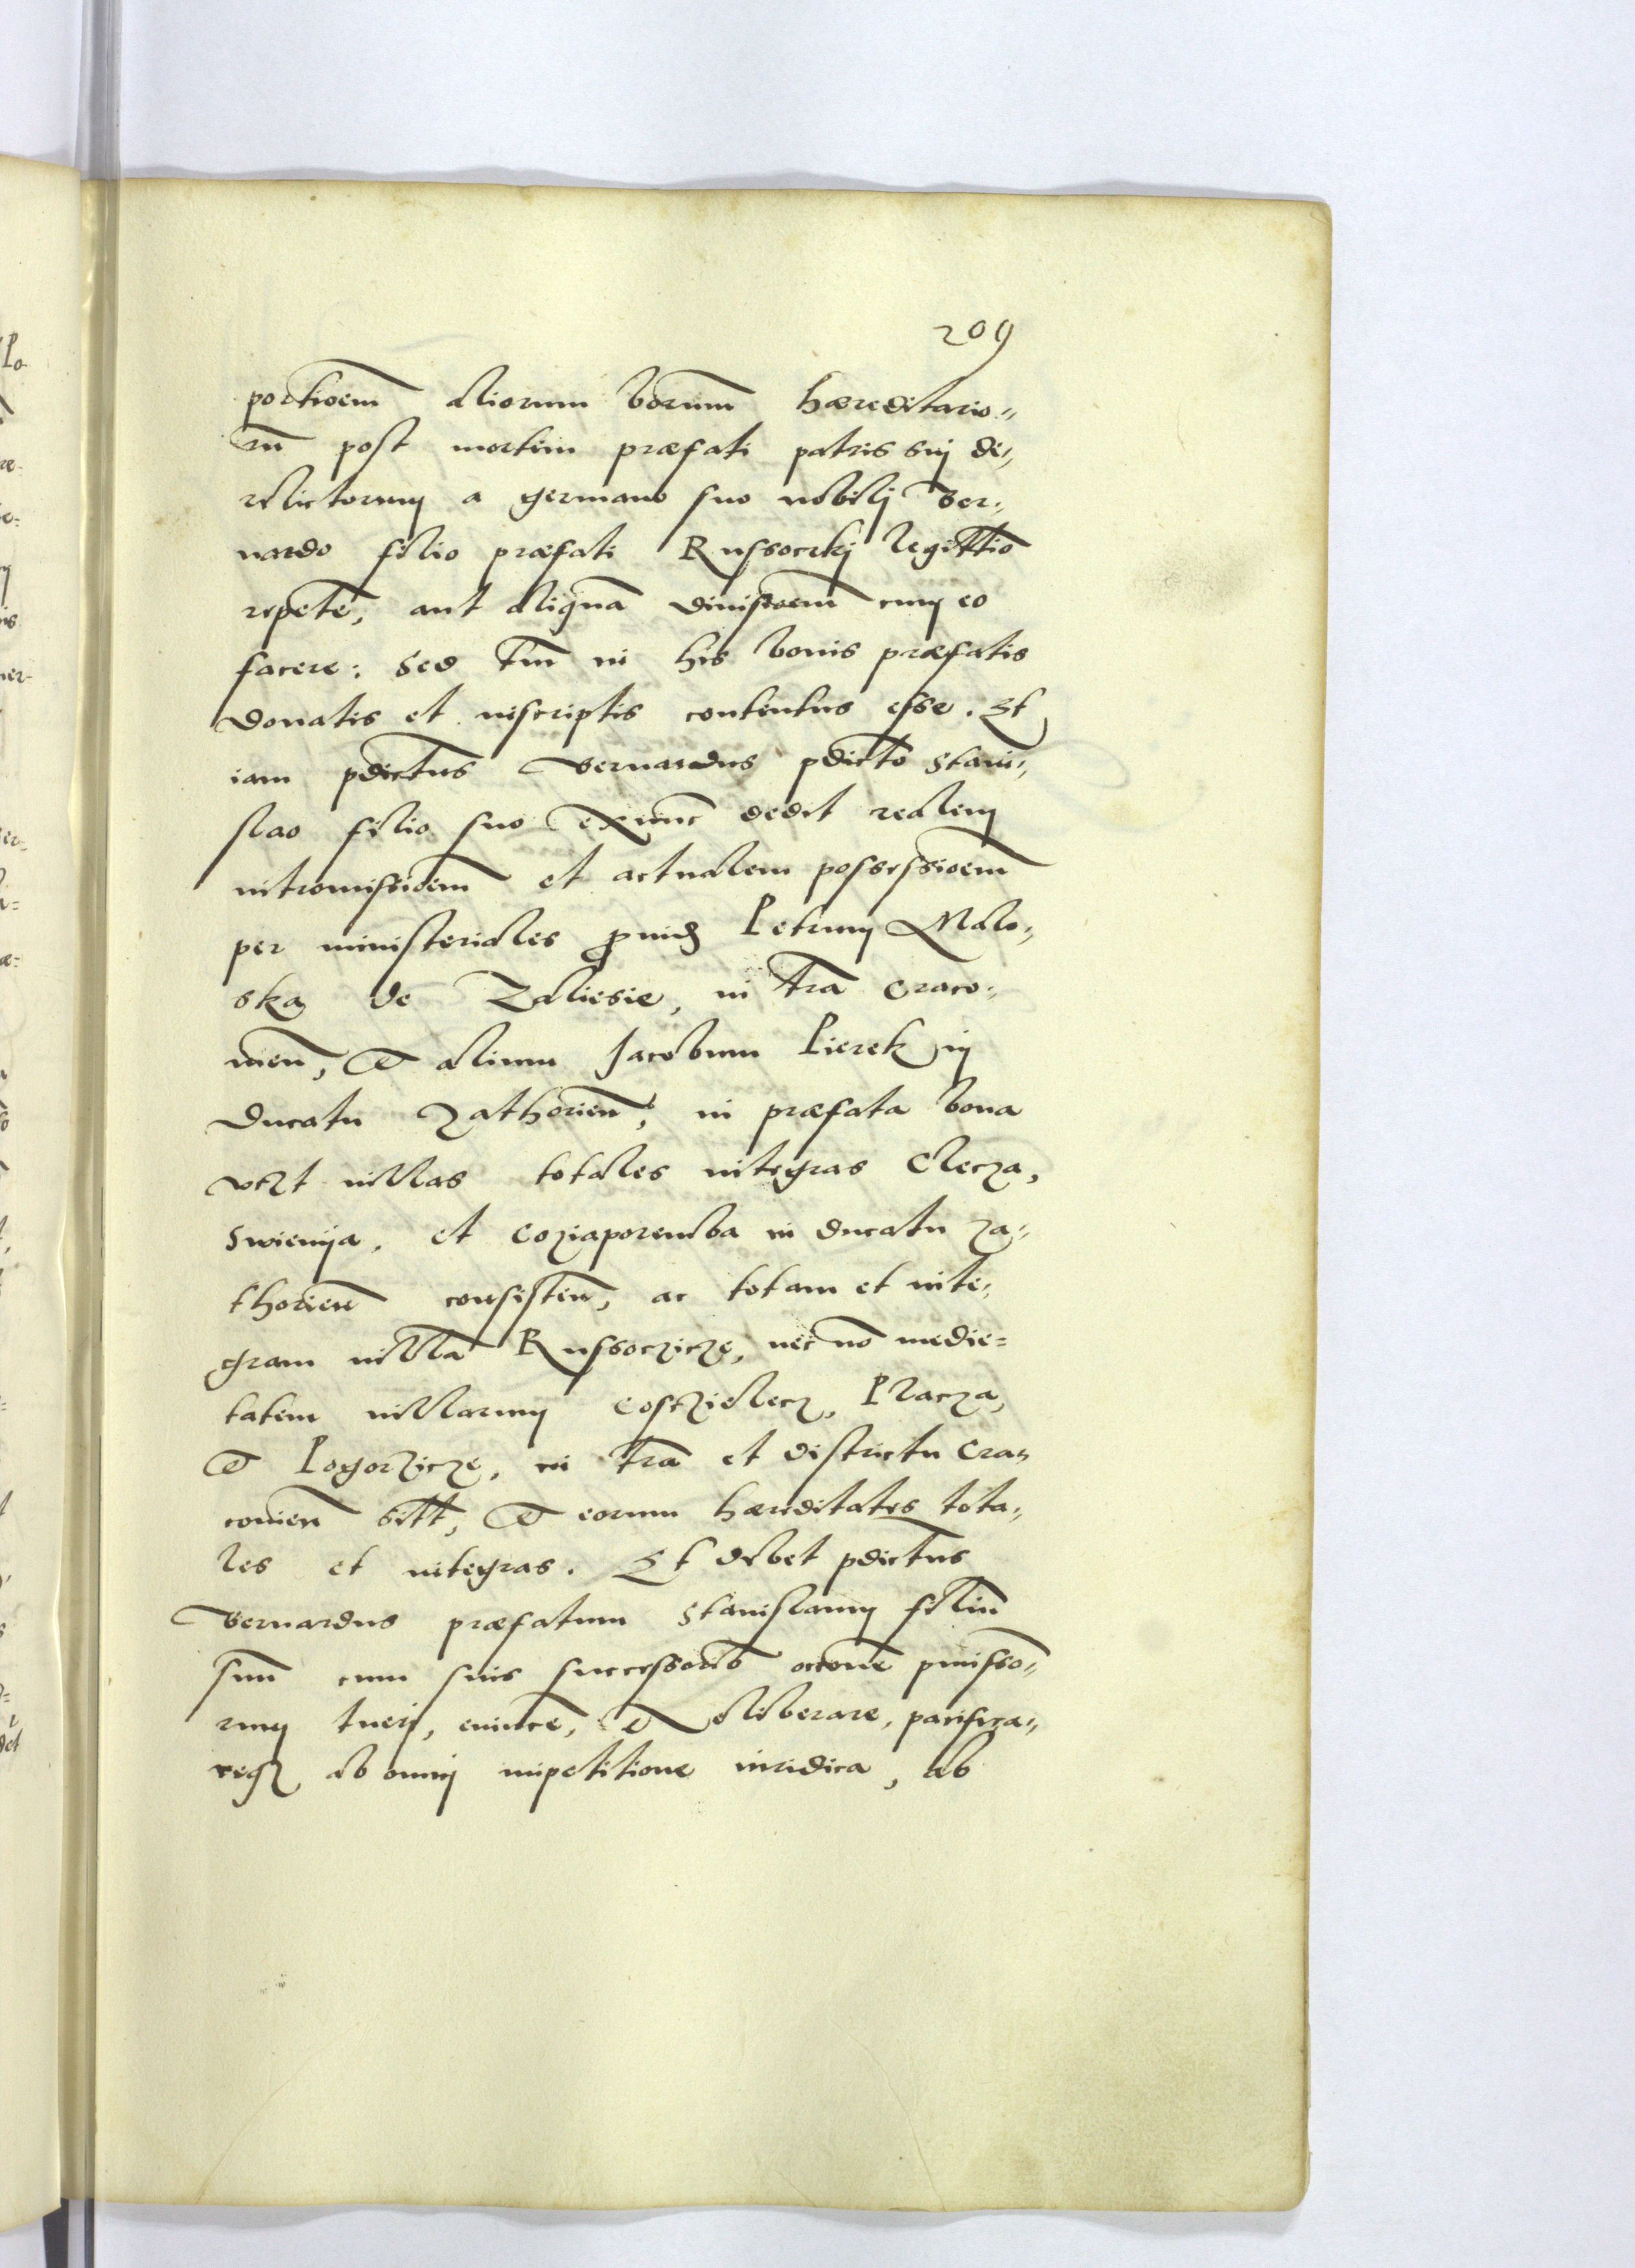 209
portioem̄ aliorum bonorum̄ hæreditario„
rū post mortem præfati patris sui de„
relictorum a germano suo nobili Ber„
nardo filio præfati Russoczki legittīo
repetē, aut aliquā diuisioem̄ cum eo
facere: Sed tm̄ in his bonis præfatis
donatis et inscriptis contentus esse. Et
iam pdictus Bernardus pdicto Stani„
slao filio suo extunc dedit realem
intromissioem̄ et actualem possessioem̄
per ministeriales prouid Petrum Malo„
ska de Zaliesie, in tra Craco„
uien̄, & alium Jacobum Pierek in
Ducatu Zathorien̄, in præfata bona
vtzt villas totales integras Clecza,
Swienya, et Coziaporemba in ducatu Za„
thorien̄ consisten̄, ac totam et inte„
gram villā Russoczicze, nec nō medie=
tatem villarum Costzielecz, Placza,
& Pogorzicze, in tra et districtu Cra„
couien̄ sitt, & eorum hæreditates tota„
les et integras. Et debet pdictus
Bernardus præfatum Stanislaum filiū
suū cum suis successorib occoñe pmisso„
rum tueri, euincē, & eliberare, pacifica„
reqz ab omni impetitione iuridica, ab